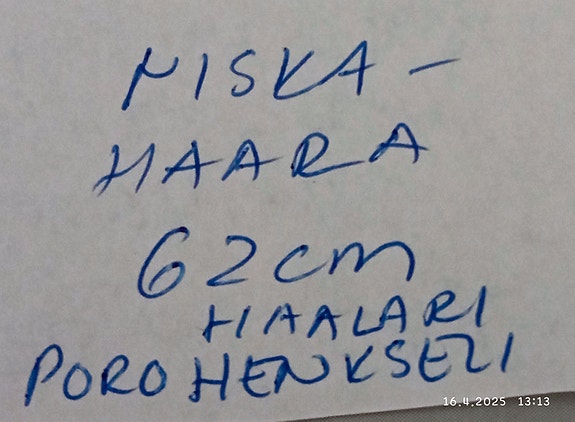 NISKA-
HAARA
62cm
HAALARI
PORO HENKSELI
16.4.2025 13:13